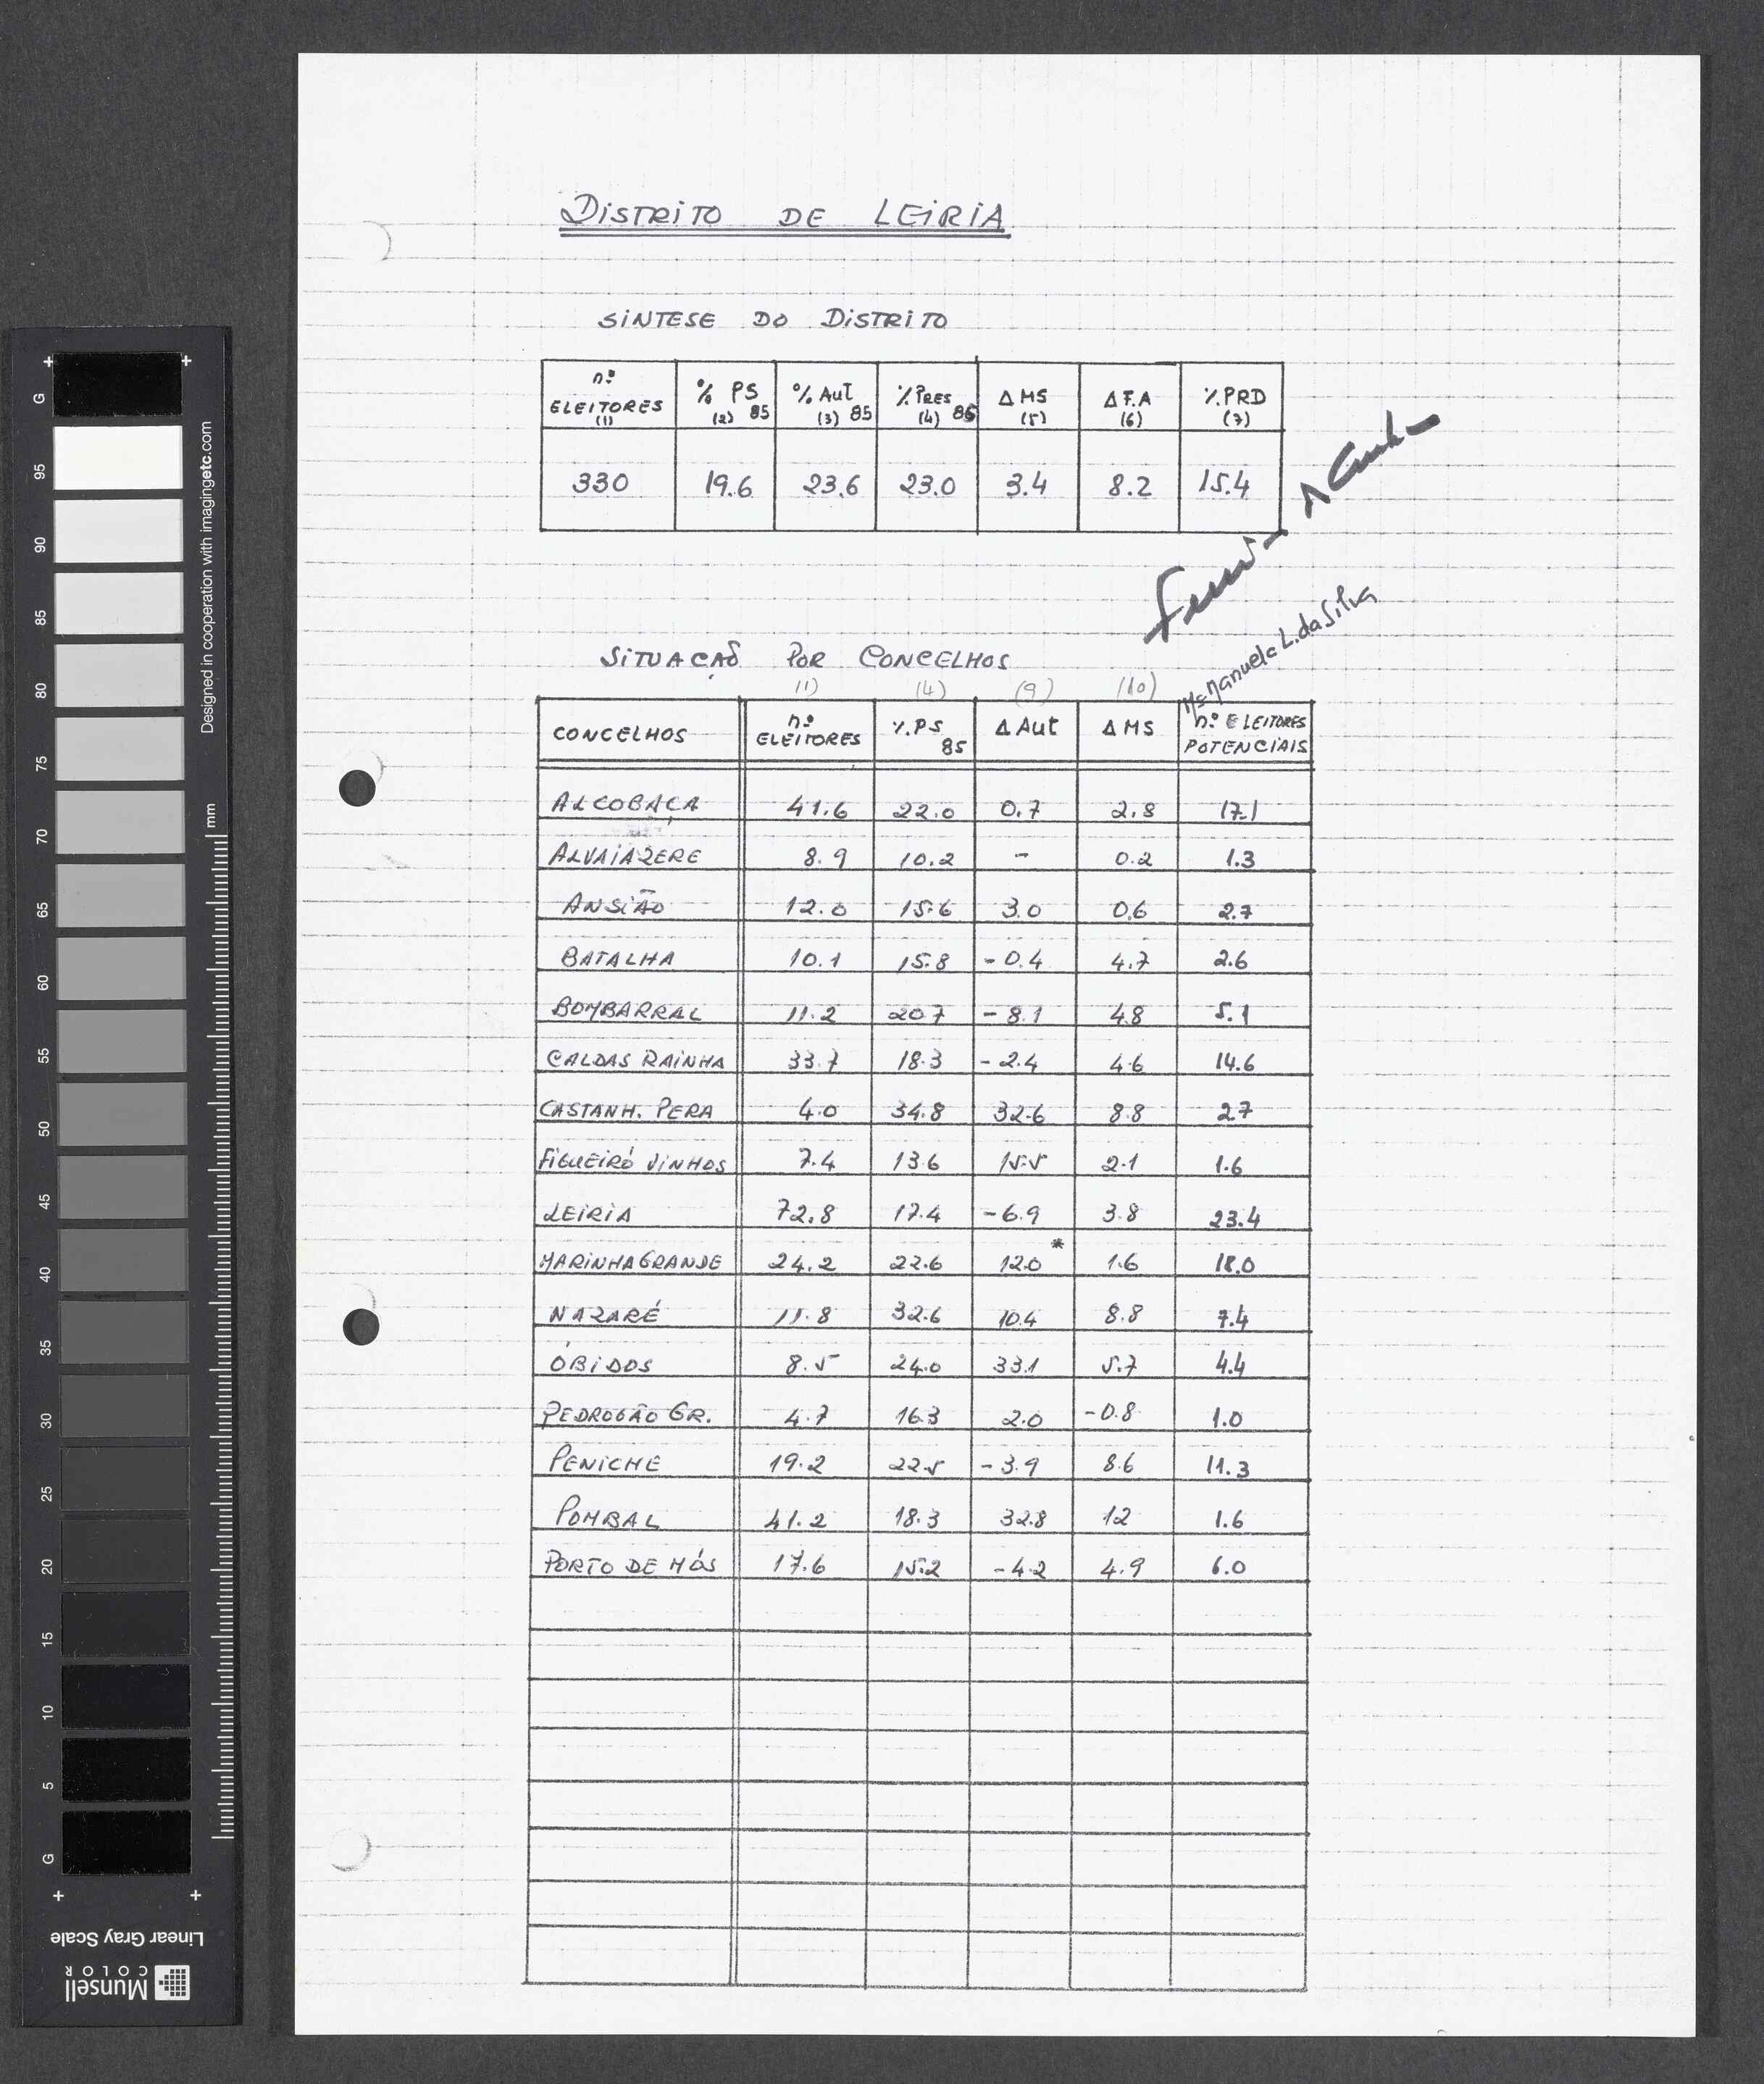 DISTRITO DE LEIRIA
SINTESE DO DISTRITO
nº ELEITORES (1) % PS (2) 85 % AUT (3) 85 % PRES (4) 86 Δ MS (5) Δ F.A (6) % PRD (7)
330 19.6 23.6 23.0 3.4 8.2 15.4
Mª Manuela L. da Silva
SITUAÇÃO POR CONCELHOS
(1) (4) (9) (10)
CONCELHOS nº ELEITORES %.PS 85 Δ AUT Δ MS nº ELEITORES POTENCIAIS
ALCOBAÇA 41.6 22.0 0.7 2.8 17.1
ALVAIÁZERE 8.9 10.2 - 0.2 1.3
ANSIÃO 12.0 15.6 3.0 0.6 2.7
BATALHA 10.1 15.8 -0.4 4.7 2.6
BOMBARRAL 11.2 20.7 -8.1 4.8 5.1
CALDAS RAINHA 33.7 18.3 -2.4 4.6 14.6
CASTANH. PERA 4.0 34.8 32.6 8.8 2.7
FIGUEIRÓ VINHOS 7.4 13.6 15.5 2.1 1.6
LEIRIA 72.8 17.4 -6.9 3.8 23.4
MARINHA GRANDE 24.2 22.6 12.0 * 1.6 18.0
NAZARÉ 11.8 32.6 10.4 8.8 7.4
ÓBIDOS 8.5 24.0 33.1 5.7 4.4
PEDROGÃO GR. 4.7 16.3 2.0 -0.8 1.0
PENICHE 19.2 22.5 -3.9 8.6 11.3
POMBAL 41.2 18.3 32.8 12 1.6
PORTO DE MÓS 17.6 15.2 -4.2 4.9 6.0
G 95 90 85 80 75 70 65 60 55 50 45 40 35 30 25 20 15 10 5 G
Designed in cooperation with imagingetc.com
mm
Linear Gray Scale
Munsell
COLOR